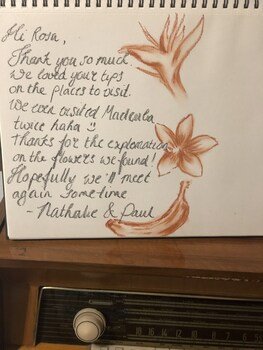 Hi Rosa,
Thank you so much.
We loved your tips
on the places to visit.
We even visited Madalena
twice haha :)
Thanks for the explanation
on the flowers we found!
Hopefully we'll meet
again sometime
- Nathalie & Paul